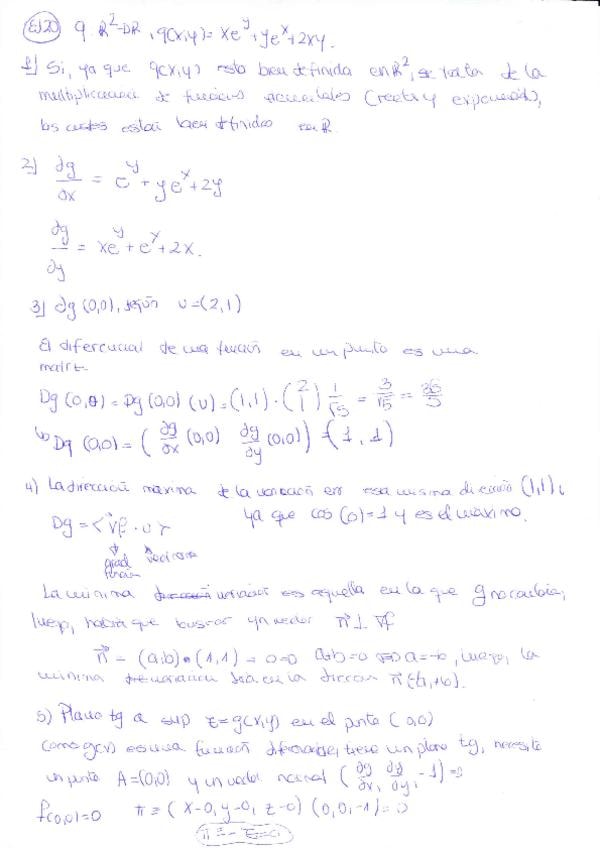 EJ20 g: R²→R, g(x,y)=xe^y+ye^x+2xy.
1) Si, ya que g(x,y) esta bien definida en R², se trata de la
multiplicacion de funciones elementales (recta y exponencial),
los cuales estan bien definidos en R.
2) ∂g/∂x = e^y + ye^x + 2y
∂g/∂y = xe^y + e^x + 2x.
3) ∂g (0,0), según u=(2,1)
El diferencial de una función en un punto es una
matriz.
Dg(0,0) = Dg(0,0)(u) = (1,1)·(2 1) 1/√5 = 3/√5 =
Dg(0,0) = (∂g/∂x (0,0) ∂g/∂y (0,0)) = (1, 1)
4) La dirección máxima de la variación es esa misma dirección (1,1),
Dg = <∇f · u> ya que cos(0)=1 y es el máximo.
grad
función
La mínima variación es aquella en la que g no cambia,
luego, habrá que buscar un vector n⃗ ⊥ ∇f
n⃗ = (a,b)·(1,1) = 0 a+b=0 a=-b, luego, la
mínima variación sera en la direccion
5) Plano tg a sup z=g(x,y) en el punto (0,0)
Como g(x) es una función diferenciable, tiene un plano tg, necesito
un punto A=(0,0) y un vector normal (∂g/∂x, ∂g/∂y, -1)=0
f(0,0)=0 π≡(x-0, y-0, z-0)(0,0,-1)=0
π≡-z=0